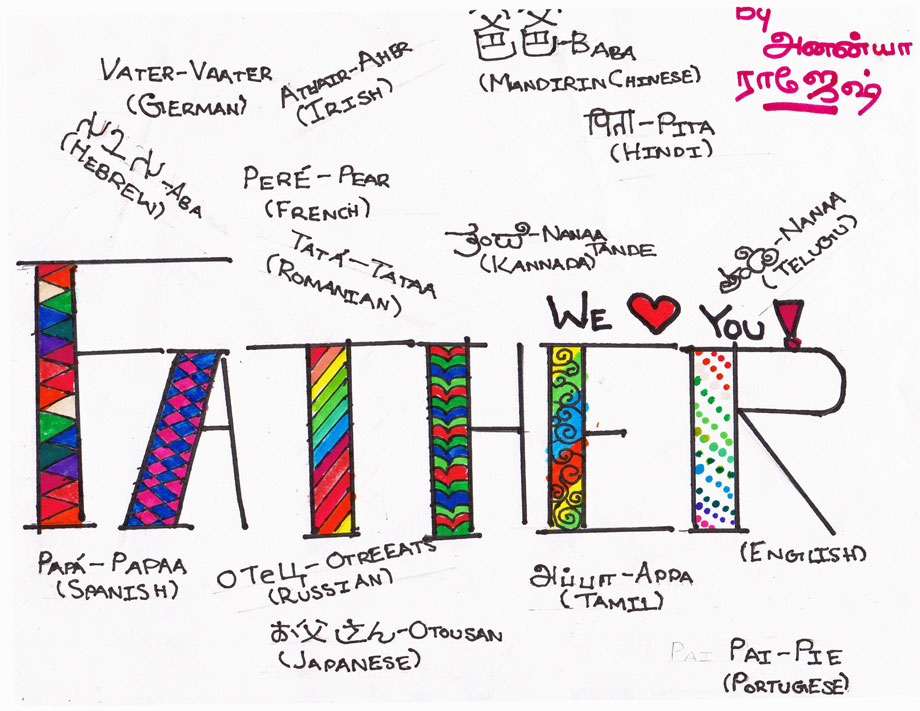 By
அனன்யா
ராஜேஷ்
爸爸-BABA
(MANDIRIN CHINESE)
VATER-VAATER
(GERMAN)
ATHAIR-AHER
(IRISH)
पिता-PITA
(HINDI)
-ABA
(HEBREW)
PERÉ-PEAR
(FRENCH)
TATĂ-TATAA
(ROMANIAN)
-NANAA
TANDE
(KANNADA)
-NANAA
(TELUGU)
WE ❤ YOU!
FATHER
(ENGLISH)
PAPÁ-PAPAA
(SPANISH)
ОТеЦ-OTREEATS
(RUSSIAN)
அப்பா-APPA
(TAMIL)
お父さん-OTOUSAN
(JAPANESE)
PAI PAI-PIE
(PORTUGESE)